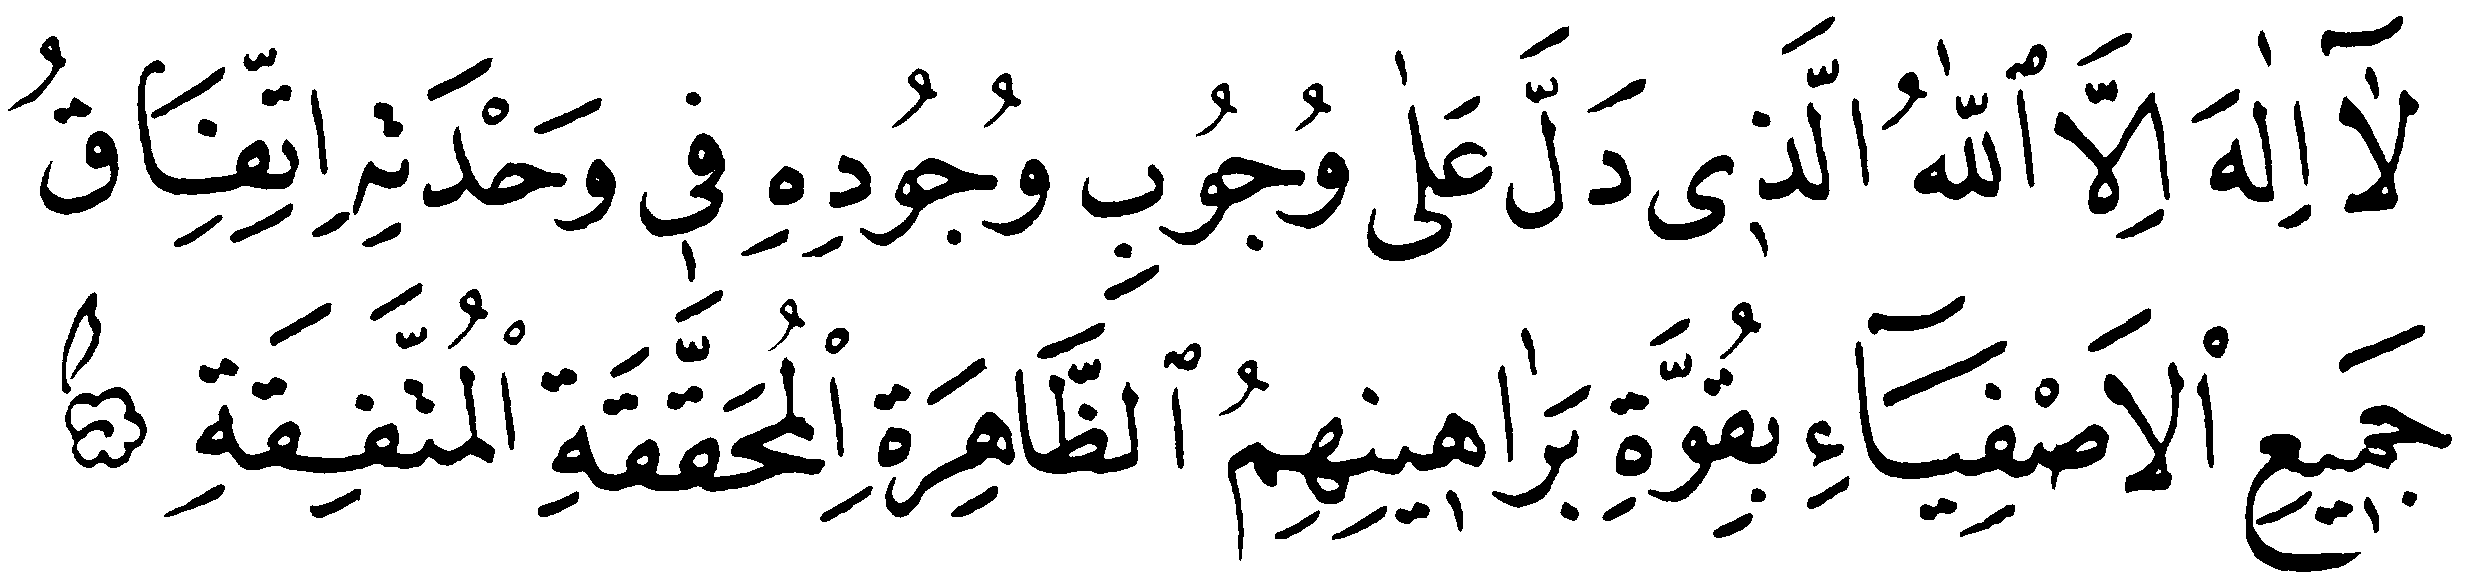 لَٓا اِلٰهَ اِلَّا ٱللّٰهُ الَّذٖى دَلَّ عَلٰى وُجُوبِ وُجُودِهِ فٖى وَحْدَتِهِ اِتِّفَاقُ
جَمٖيعِ ٱلْاَصْفِيَٓاءِ بِقُوَّةِ بَرَاهٖينِهِمُ ٱلظَّاهِرَةِ الْمُحَقَّقَةِ الْمُتَّفِقَةِ